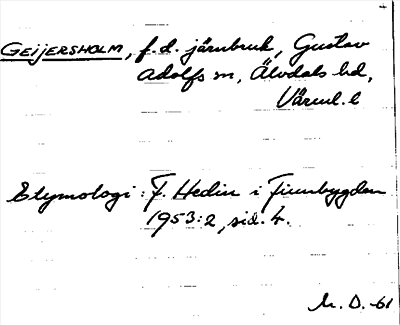 GEIJERSHOLM, f.d. järnbruk, Gustav
Adolfs sn, Älvdals hd,
Värml. l
Etymologi: F. Hedin i Finnbygden
1953:2, sid. 4.
M. D. -61